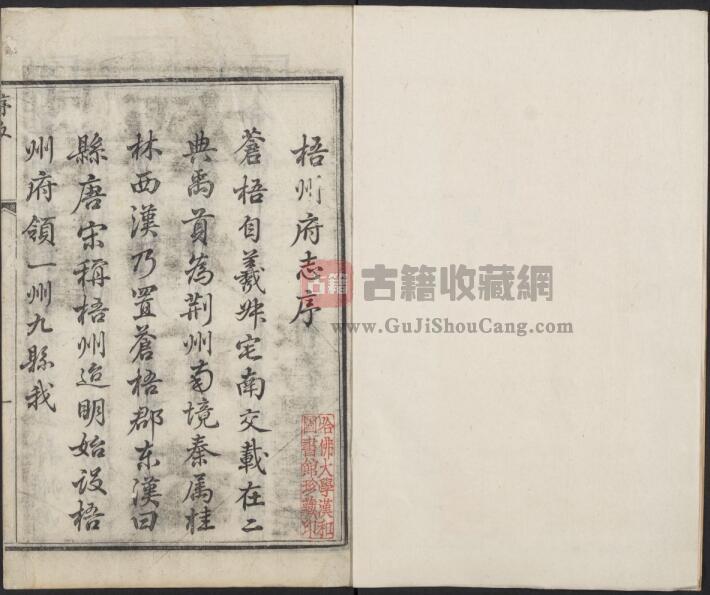 梧州府志序
蒼梧自羲叔宅南交載在二
典禹貢為荆州南境秦屬桂
林西漢乃置蒼梧郡東漢曰
縣唐宋稱梧州迨明始設梧
州府領一州九縣我
哈佛大學漢和
圖書館珍藏印
古籍 古籍收藏網
www.GuJiShouCang.com